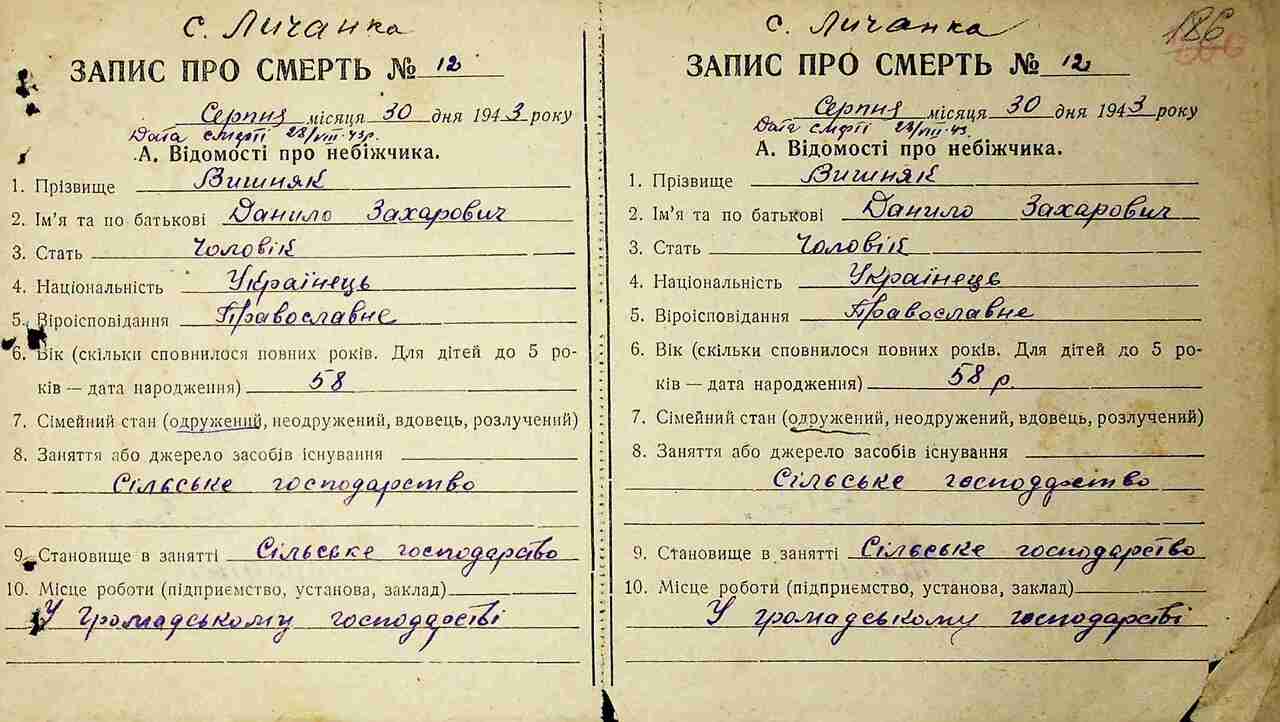 с. Личанка
ЗАПИС ПРО СМЕРТЬ № 12
Серпня місяця 30 дня 1943 року
Дата смерті 28/VIII-43р.
А. Відомості про небіжчика.
1. Прізвище Вишняк
2. Ім'я та по батькові Данило Захарович
3. Стать Чоловік
4. Національність Українець
5. Віроісповідання Православне
6. Вік (скільки сповнилося повних років. Для дітей до 5 ро-
ків — дата народження) 58
7. Сімейний стан (одружений, неодружений, вдовець, розлучений)
8. Заняття або джерело засобів існування
Сільське господарство
9. Становище в занятті Сільське господарство
10. Місце роботи (підприємство, установа, заклад)
У громадському господарстві
с. Личанка
186
ЗАПИС ПРО СМЕРТЬ № 12
Серпня місяця 30 дня 1943 року
Дата смерті 28/VIII-43.
А. Відомості про небіжчика.
1. Прізвище Вишняк
2. Ім'я та по батькові Данило Захарович
3. Стать Чоловік
4. Національність Українець
5. Віроісповідання Православне
6. Вік (скільки сповнилося повних років. Для дітей до 5 ро-
ків — дата народження) 58 р.
7. Сімейний стан (одружений, неодружений, вдовець, розлучений)
8. Заняття або джерело засобів існування
Сільське господарство
9. Становище в занятті Сільське господарство
10. Місце роботи (підприємство, установа, заклад)
У громадському господарстві